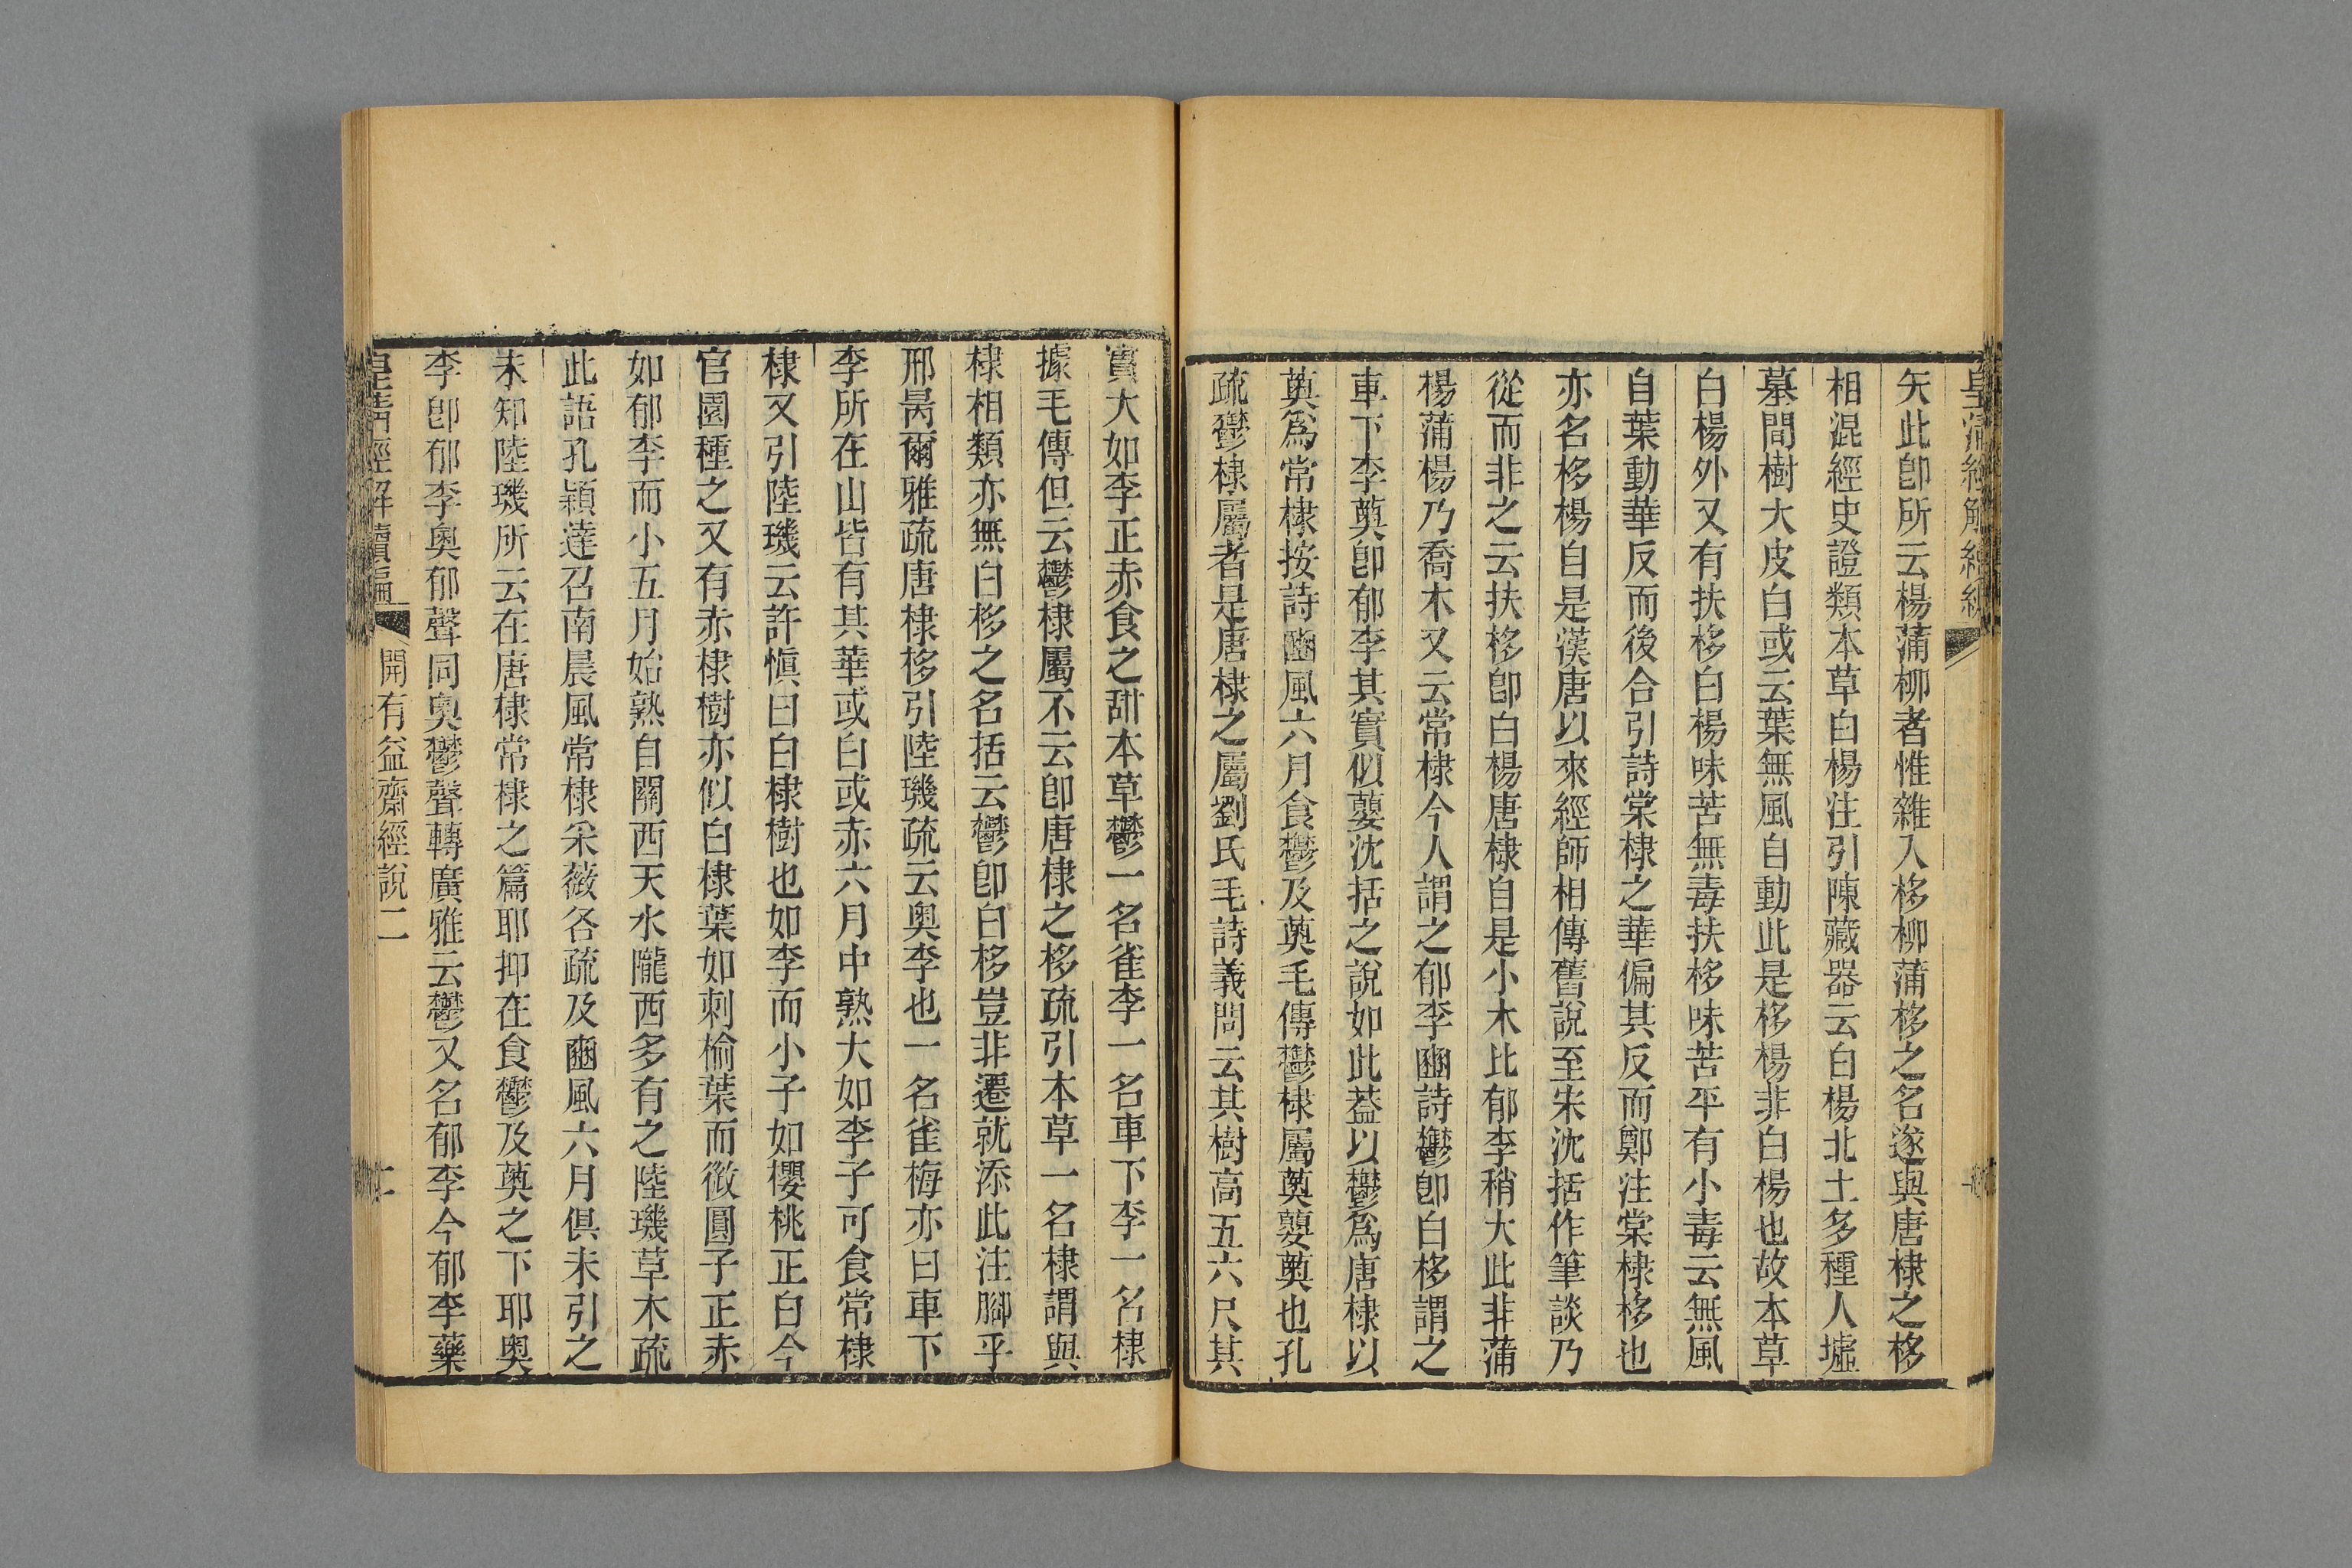 矢此卽所云楊蒲柳者惟雜入栘柳蒲栘之名遂與唐棣之栘
相混經史證類本草白楊注引陳藏器云白楊北土多種人墟
墓間樹大皮白或云葉無風自動此是栘楊非白楊也故本草
白楊外又有扶栘白楊味苦無毒扶栘味苦平有小毒云無風
自葉動華反而後合引詩棠棣之華偏其反而鄭注棠棣栘也
亦名栘楊自是漢唐以來經師相傳舊說至宋沈括作筆談乃
從而非之云扶栘卽白楊唐棣自是小木比郁李稍大此非蒲
楊蒲楊乃喬木又云常棣今人謂之郁李豳詩鬱卽白栘謂之
車下李薁卽郁李其實似蘡沈括之說如此葢以鬱爲唐棣以
薁爲常棣按詩豳風六月食鬱及薁毛傳鬱棣屬薁蘡薁也孔
疏鬱棣屬者是唐棣之屬劉氏毛詩義問云其樹高五六尺其
實大如李正赤食之甜本草鬱一名雀李一名車下李一名棣
據毛傳但云鬱棣屬不云卽唐棣之栘疏引本草一名棣謂與
棣相類亦無白栘之名括云鬱卽白栘豈非遷就添此注腳乎
邢昺爾雅疏唐棣栘引陸璣疏云奧李也一名雀梅亦曰車下
李所在山皆有其華或白或赤六月中熟大如李子可食常棣
棣又引陸璣云許愼曰白棣樹也如李而小子如櫻桃正白今
官園種之又有赤棣樹亦似白棣葉如刺榆葉而微圓子正赤
如郁李而小五月始熟自關西天水隴西多有之陸璣草木疏
此語孔穎達召南晨風常棣采薇各疏及豳風六月俱未引之
未知陸璣所云在唐棣常棣之篇耶抑在食鬱及薁之下耶奧
李卽郁李奧郁聲同奧鬱聲轉廣雅云鬱又名郁李今郁李藥
皇淸經解續編　開有益齋經說二